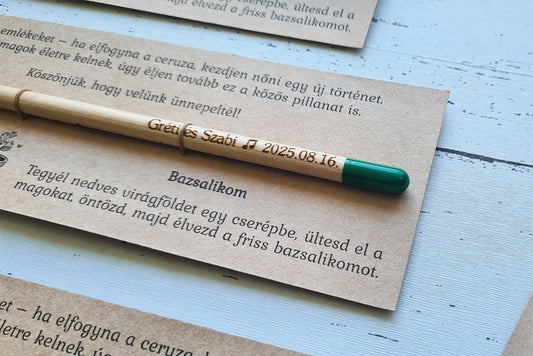 cserépbe, ültesd el a
majd élvezd a friss bazsalikomot.
emlékeket – ha elfogyna a ceruza, kezdjen nőni egy új történet.
magok életre kelnek, úgy éljen tovább ez a közös pillanat is.
Köszönjük, hogy velünk ünnepeltél!
Gréti és Szabi 🎵 2025.08.16.
Bazsalikom
Tegyél nedves virágföldet egy cserépbe, ültesd el a
magokat, öntözd, majd élvezd a friss bazsalikomot.
– ha elfogyna a ceruza, kezdjen
életre kelnek, úgy